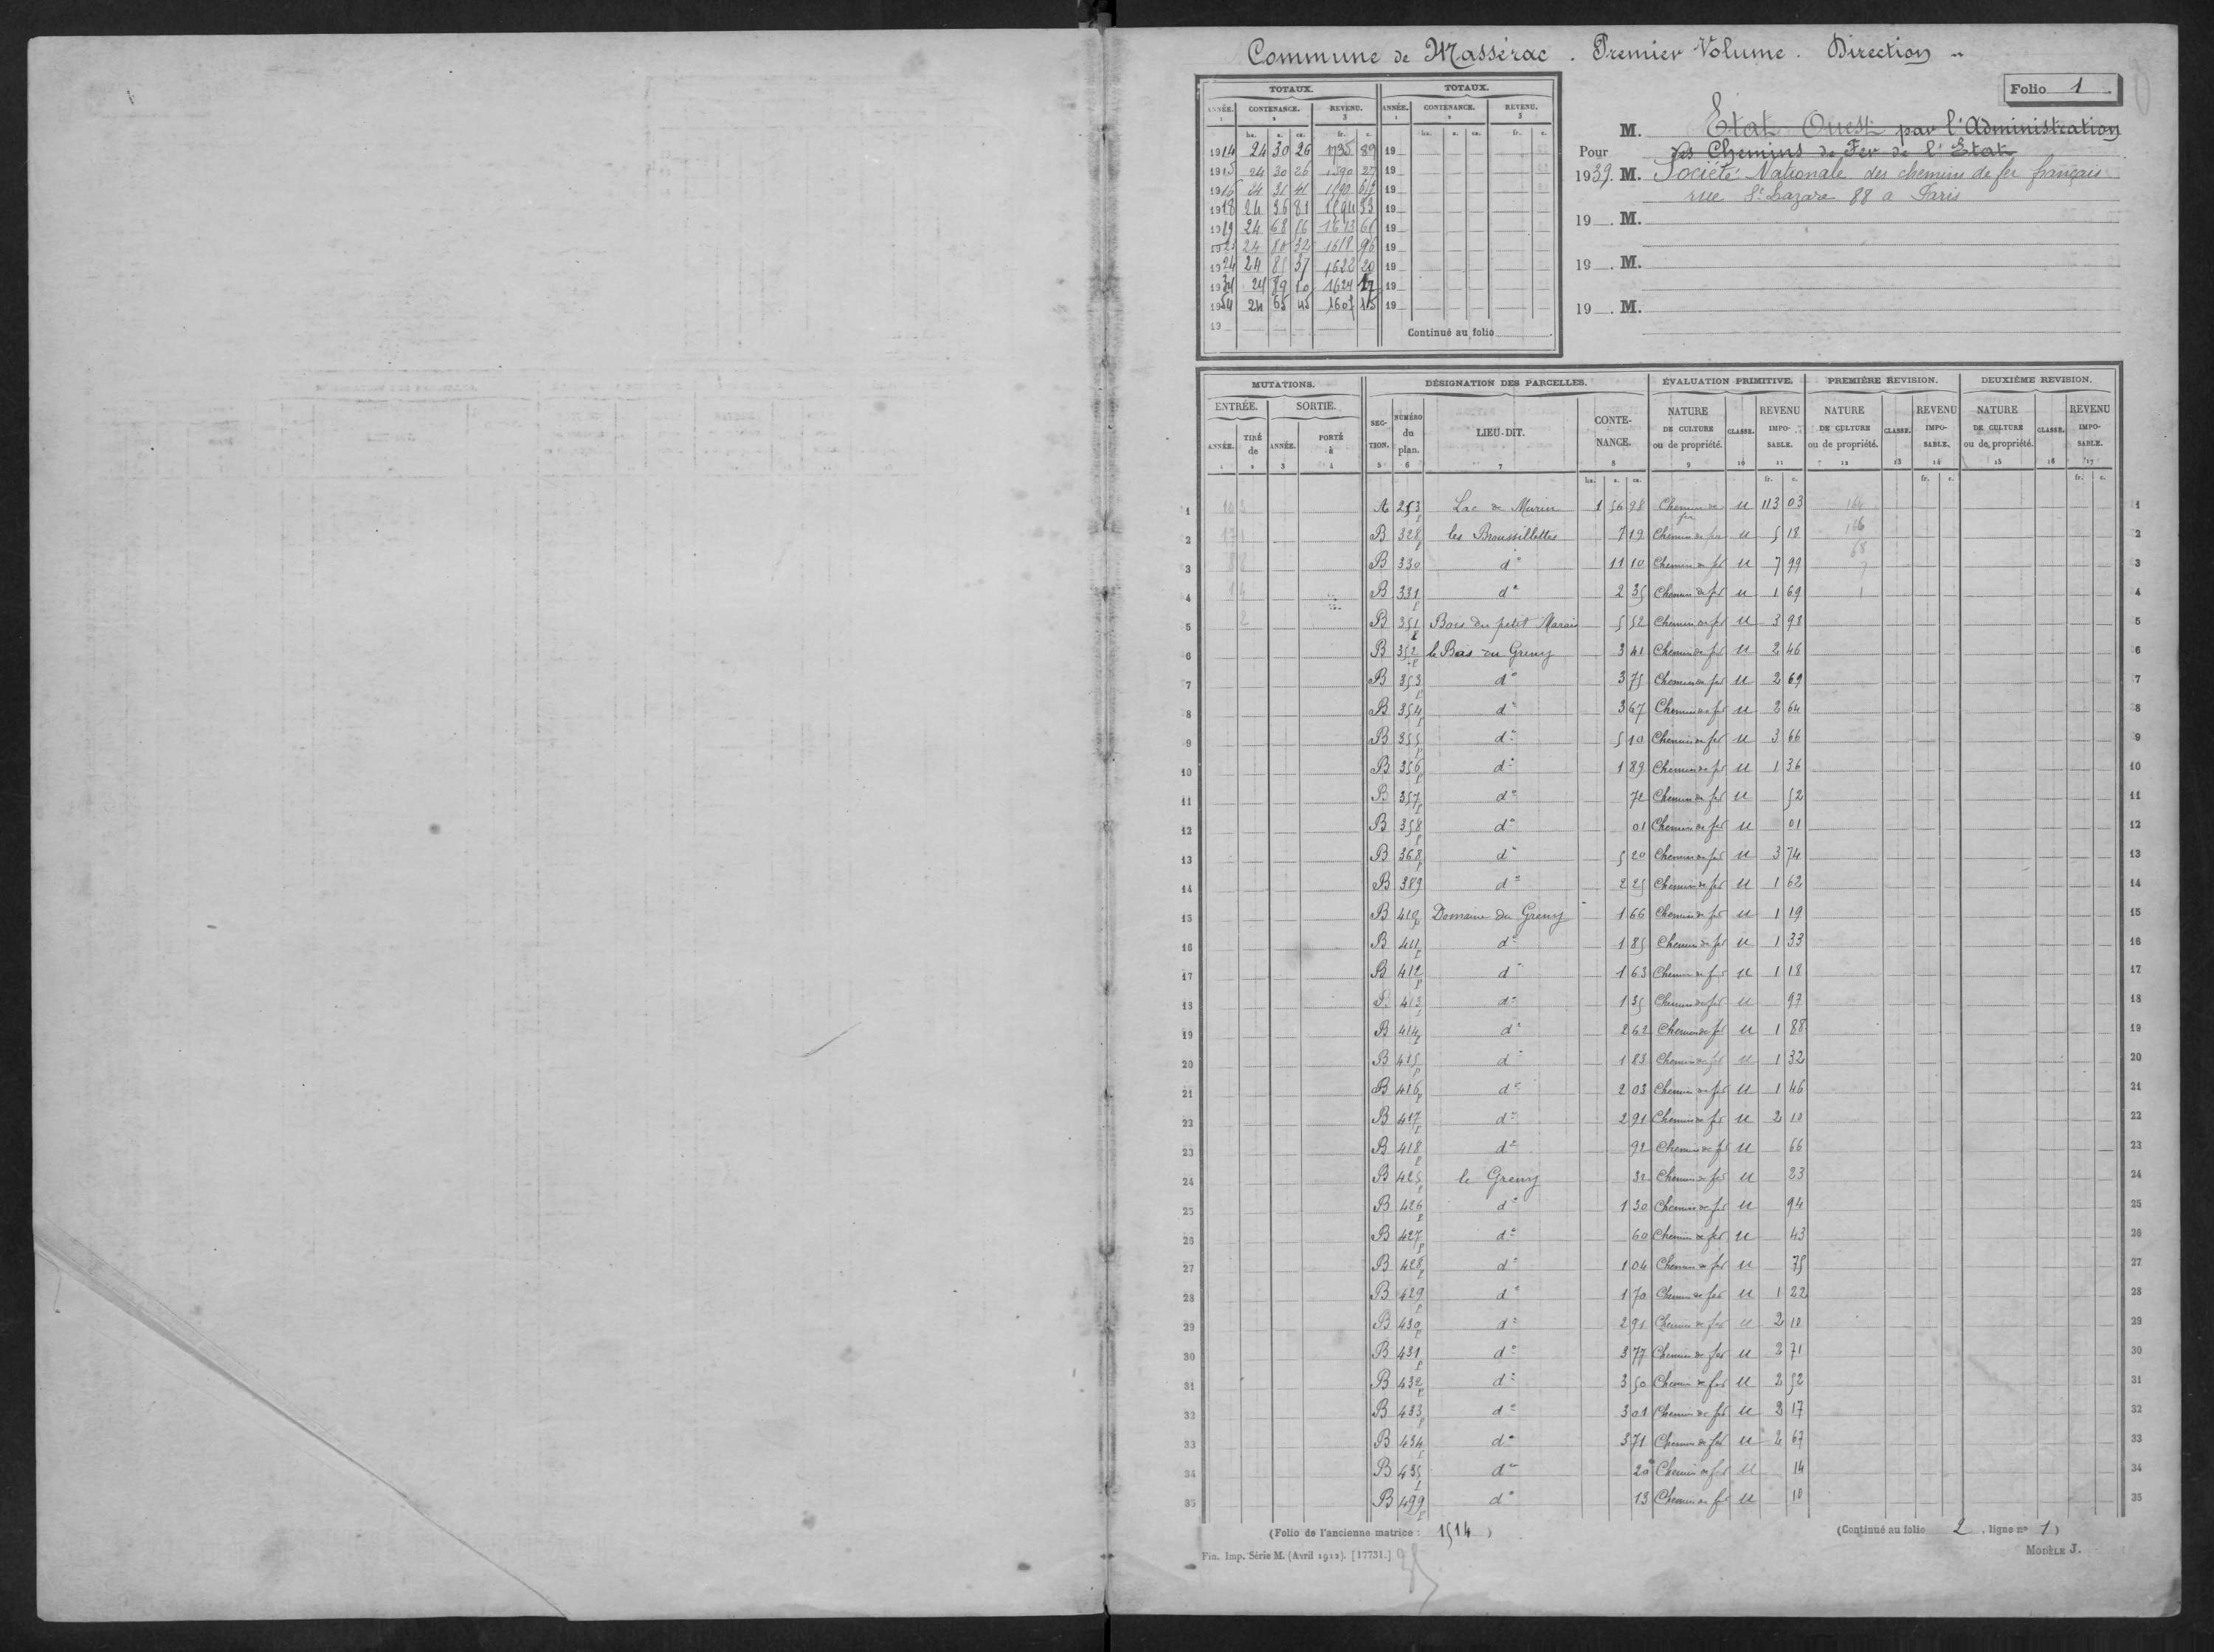 Commune de Massérac . Premier Volume . Direction
Folio 1
TOTAUX. TOTAUX.
ANNÉE. CONTENANCE. REVENU. ANNÉE. CONTENANCE. REVENU.
1 2 3 1 2 3
ha. a. ca. fr. c. ha. a. ca. fr. c.
1914 24 30 26 1735 89 19
1915 24 30 26 1590 27 19
1916 24 31 41 19
1918 24 36 81 1594 33 19
1919 24 68 16 1613 68 19
24 80 32 1618 96 19
1924 24 85 37 1622 20 19
1934 24 89 10 1624 19
1954 24 65 45 1607 45 19
19
Continué au folio
M. Etat Ouest par l'Administration
Pour des Chemins de Fer de l'Etat
1939. M. Société Nationale des chemins de fer français
rue St Lazare 88 a Paris
19 . M.
19 . M.
19 . M.
MUTATIONS. DÉSIGNATION DES PARCELLES. ÉVALUATION PRIMITIVE. PREMIÈRE REVISION. DEUXIÈME REVISION.
ENTRÉE. SORTIE. SECTION. NUMÉRO du plan. LIEU-DIT. CONTENANCE. NATURE DE CULTURE ou de propriété. CLASSE. REVENU IMPOSABLE. NATURE DE CULTURE ou de propriété. CLASSE. REVENU IMPOSABLE. NATURE DE CULTURE ou de propriété. CLASSE. REVENU IMPOSABLE.
ANNÉE. TIRÉ de ANNÉE. PORTÉ à
1 2 3 4 5 6 7 8 9 10 11 12 13 14 15 16 17
ha. a. ca. fr. c. fr. c. fr. c.
1 A 253 p Lac de Murin 1 56 98 Chemin de fer U 113 03 1
2 B 328 p les Broussillettes 7 19 Chemin de fer U 5 18 2
3 B 330 do 11 10 Chemin de fer U 7 99 3
4 B 331 p do 2 35 Chemin de fer U 1 69 4
5 B 351 p Bois du petit Marais 5 52 Chemin de fer U 3 98 5
6 B 352 p le Bas du Greny 3 41 Chemin de fer U 2 46 6
7 B 353 p do 3 75 Chemin de fer U 2 69 7
8 B 354 p do 3 67 Chemin de fer U 2 64 8
9 B 355 p do 5 10 Chemin de fer U 3 66 9
10 B 356 p do 1 89 Chemin de fer U 1 36 10
11 B 357 p do 72 Chemin de fer U 52 11
12 B 358 p do 01 Chemin de fer U 01 12
13 B 368 p do 5 20 Chemin de fer U 3 74 13
14 B 389 do 2 25 Chemin de fer U 1 62 14
15 B 410 p Domaine du Greny 1 66 Chemin de fer U 1 19 15
16 B 411 p do 1 85 Chemin de fer U 1 33 16
17 B 412 p do 1 63 Chemin de fer U 1 18 17
18 B 413 do 1 35 Chemin de fer U 97 18
19 B 414 p do 2 62 Chemin de fer U 1 88 19
20 B 415 p do 1 83 Chemin de fer U 1 32 20
21 B 416 p do 2 03 Chemin de fer U 1 46 21
22 B 417 p do 2 91 Chemin de fer U 2 10 22
23 B 418 p do 92 Chemin de fer U 66 23
24 B 425 p le Greny 32 Chemin de fer U 23 24
25 B 426 p do 1 30 Chemin de fer U 94 25
26 B 427 p do 60 Chemin de fer U 43 26
27 B 428 p do 1 04 Chemin de fer U 75 27
28 B 429 p do 1 70 Chemin de fer U 1 22 28
29 B 430 p do 2 91 Chemin de fer U 2 10 29
30 B 431 p do 3 77 Chemin de fer U 2 71 30
31 B 432 p do 3 50 Chemin de fer U 2 52 31
32 B 433 p do 3 01 Chemin de fer U 2 17 32
33 B 434 p do 3 71 Chemin de fer U 2 67 33
34 B 435 p do 20 Chemin de fer U 14 34
35 B 499 p do 13 Chemin de fer U 10 35
(Folio de l'ancienne matrice : 1514 )
(Continué au folio 2 , ligne no 1 )
Fin. Imp. Série M. (Avril 1912). [17731.]
MODÈLE J.